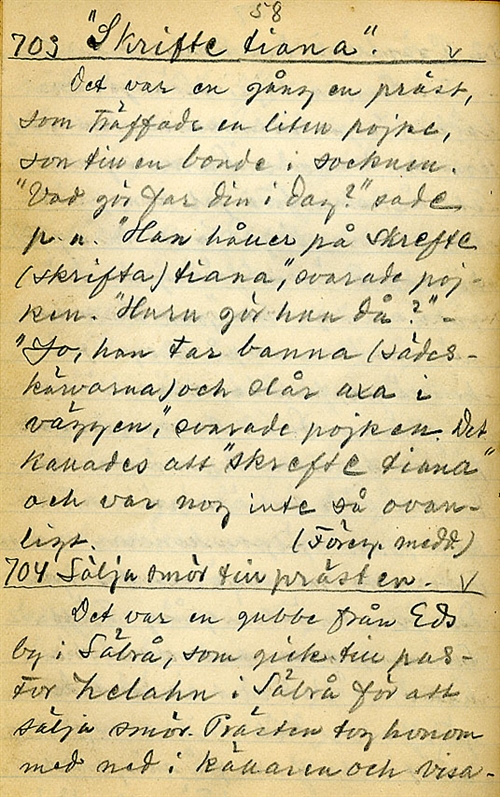 58
703 "Skrifte tiana". v
Det var en gång en präst,
som träffade en liten pojke,
son till en bonde i socknen.
"Vad gör far din i dag?" sade
p. n. "Han håller på skrefte
(skrifta) tiana", svarade poj-
ken. "Huru gör han då?" -
"Jo, han tar banna (sädes-
kärvarna) och slår axa i
väggen," svarade pojken. Det
kallades att "skrefte tiana"
och var nog inte så ovan-
ligt. (Föreg. medd.)
704 Sälja smör till prästen. v
Det var en gubbe från Eds
by i Säbrå, som gick till pas-
tor Zelahn i Säbrå för att
sälja smör. Prästen tog honom
med ned i källaren och visa-